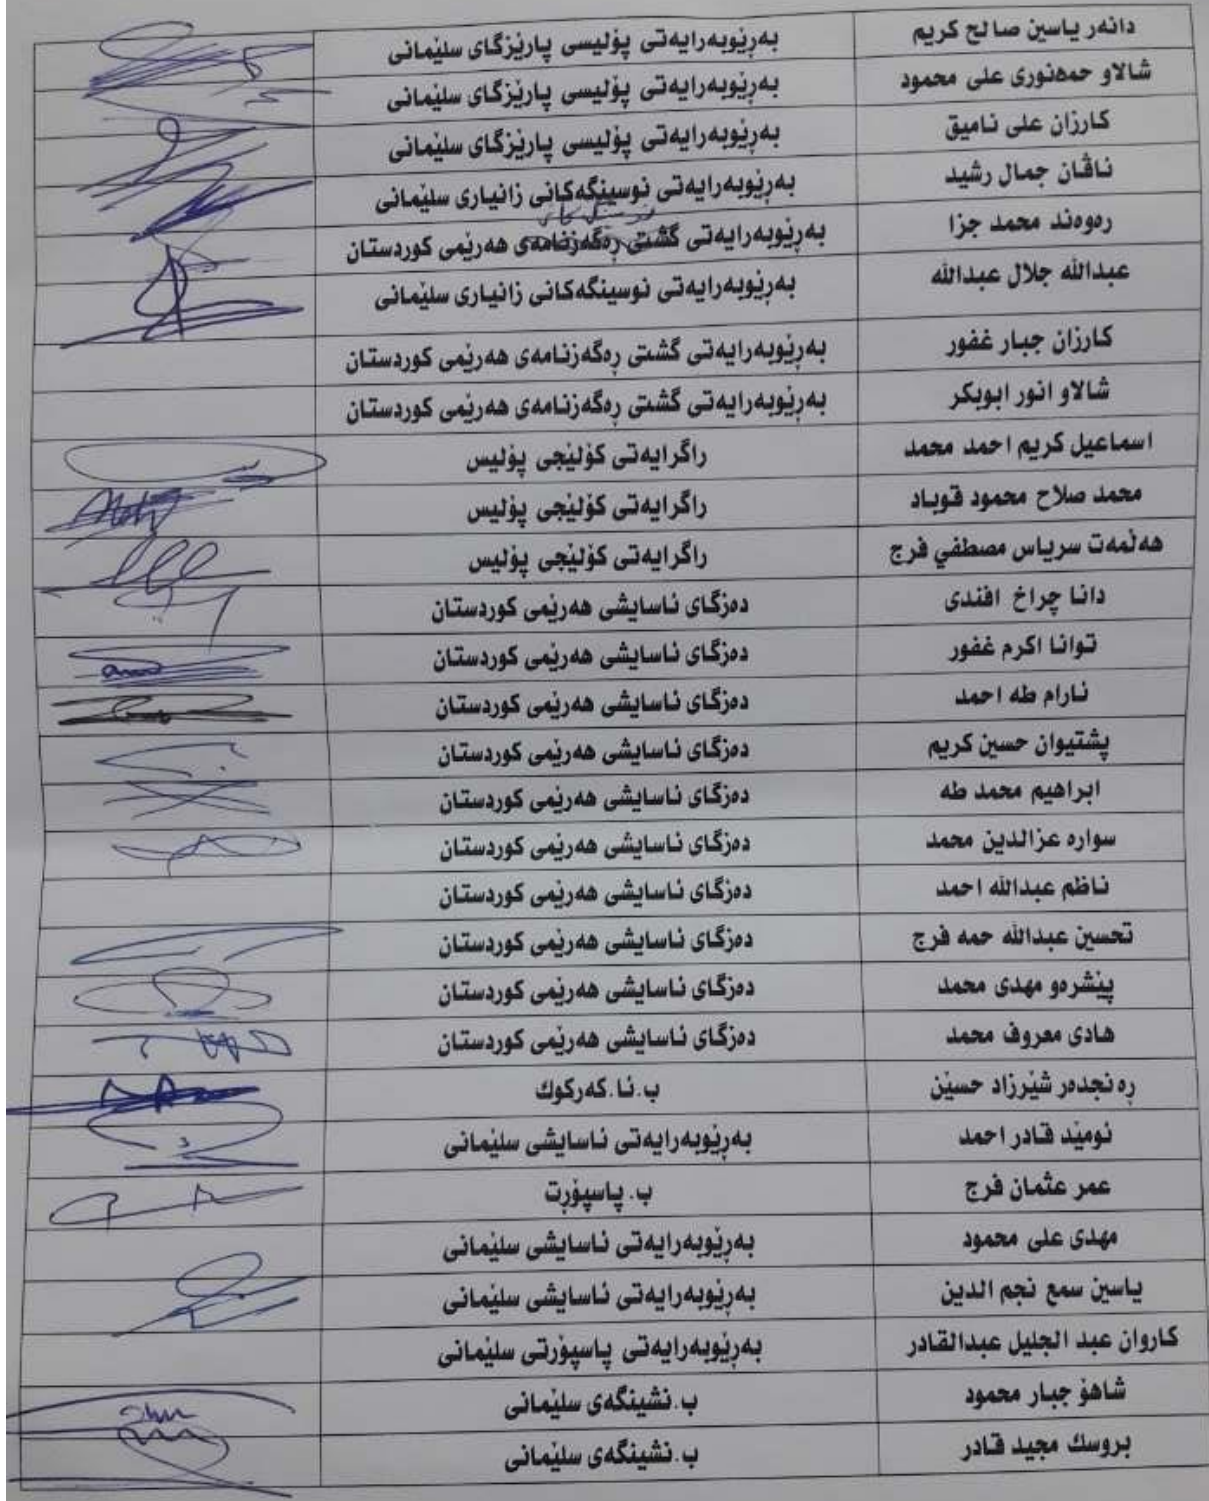 دانەر یاسین صالح کریم بەڕێوبەرایەتی پۆلیسی پارێزگای سلێمانی
شالاو حمەنوری علی محمود بەڕێوبەرایەتی پۆلیسی پارێزگای سلێمانی
کارزان علی نامیق بەڕێوبەرایەتی پۆلیسی پارێزگای سلێمانی
ناڤان جمال رشید بەڕێوبەرایەتی نوسینگەکانی زانیاری سلێمانی
رەوەند محمد جزا بەڕێوبەرایەتی گشتی ڕەگەزنامەی هەرێمی کوردستان
عبدالله جلال عبدالله بەڕێوبەرایەتی نوسینگەکانی زانیاری سلێمانی
کارزان جبار غفور بەڕێوبەرایەتی گشتی ڕەگەزنامەی هەرێمی کوردستان
شالاو انور ابوبکر بەڕێوبەرایەتی گشتی ڕەگەزنامەی هەرێمی کوردستان
اسماعیل کریم احمد محمد راگرایەتی کۆلێجی پۆلیس
محمد صلاح محمود قوباد راگرایەتی کۆلێجی پۆلیس
هەڵمەت سرباس مصطفي فرج راگرایەتی کۆلێجی پۆلیس
دانا چراخ افندی دەزگای ئاسایشی هەرێمی کوردستان
توانا اکرم غفور دەزگای ئاسایشی هەرێمی کوردستان
ئارام طه احمد دەزگای ئاسایشی هەرێمی کوردستان
پشتیوان حسین کریم دەزگای ئاسایشی هەرێمی کوردستان
ابراهیم محمد طه دەزگای ئاسایشی هەرێمی کوردستان
سوارە عزالدین محمد دەزگای ئاسایشی هەرێمی کوردستان
ناظم عبدالله احمد دەزگای ئاسایشی هەرێمی کوردستان
تحسین عبدالله حمه فرج دەزگای ئاسایشی هەرێمی کوردستان
پێشرەو مهدی محمد دەزگای ئاسایشی هەرێمی کوردستان
هادی معروف محمد دەزگای ئاسایشی هەرێمی کوردستان
ڕەنجدەر شێرزاد حسێن ب.ئا.کەرکوك
ئومێد قادر احمد بەڕێوبەرایەتی ئاسایشی سلێمانی
عمر عثمان فرج ب. پاسپۆرت
مهدی علی محمود بەڕێوبەرایەتی ئاسایشی سلێمانی
یاسین سمع نجم الدین بەڕێوبەرایەتی ئاسایشی سلێمانی
کاروان عبد الجلیل عبدالقادر بەڕێوبەرایەتی پاسپۆرتی سلێمانی
شاهۆ جبار محمود ب.نشینگەی سلێمانی
بروسك مجید قادر ب.نشینگەی سلێمانی